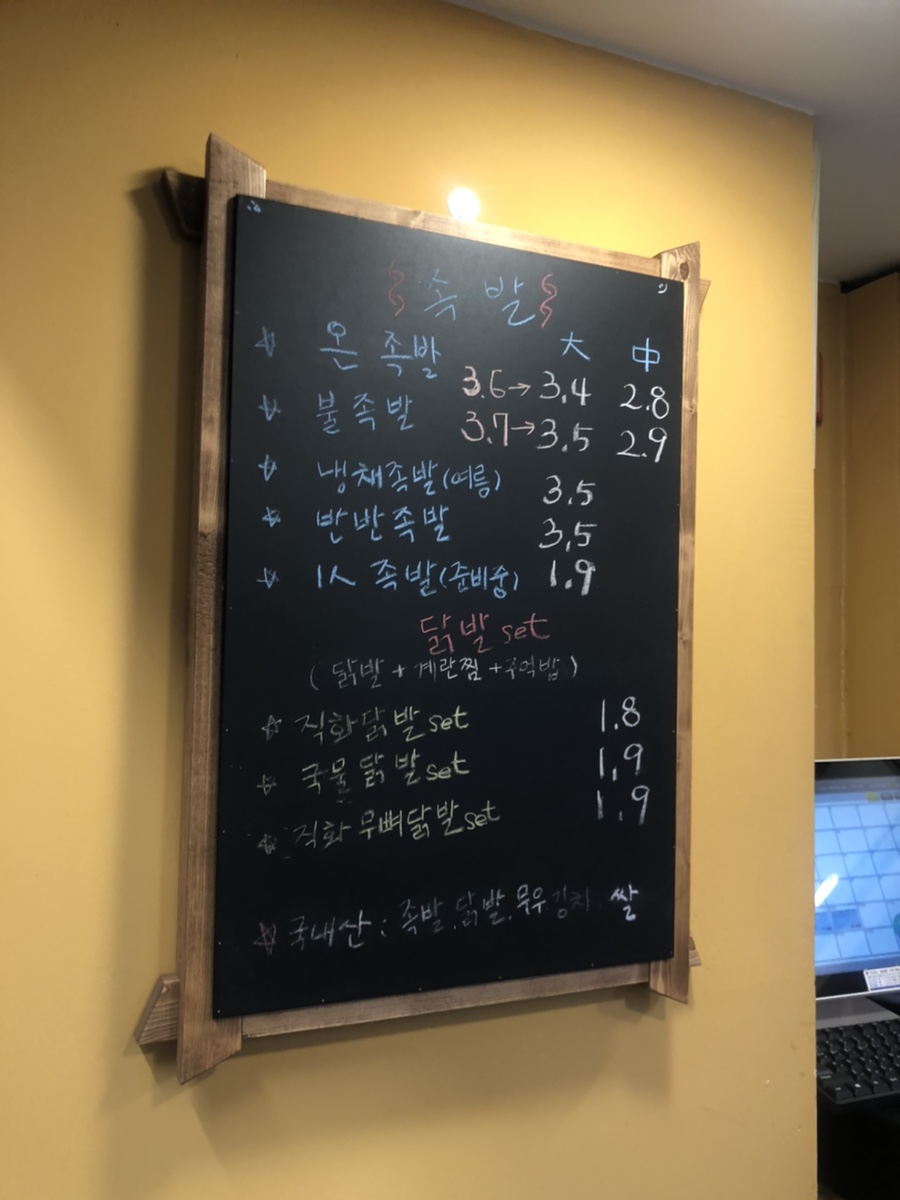 족발
온 족발 大 中
3.6→3.4 2.8
불족발 3.7→3.5 2.9
냉채족발(여름) 3.5
반반족발 3.5
1人 족발(준비중) 1.9
닭발 set
(닭발 + 계란찜 + 주먹밥)
직화닭발set 1.8
국물닭발set 1.9
직화무뼈닭발set 1.9
국내산: 족발, 닭발, 무우김치, 쌀